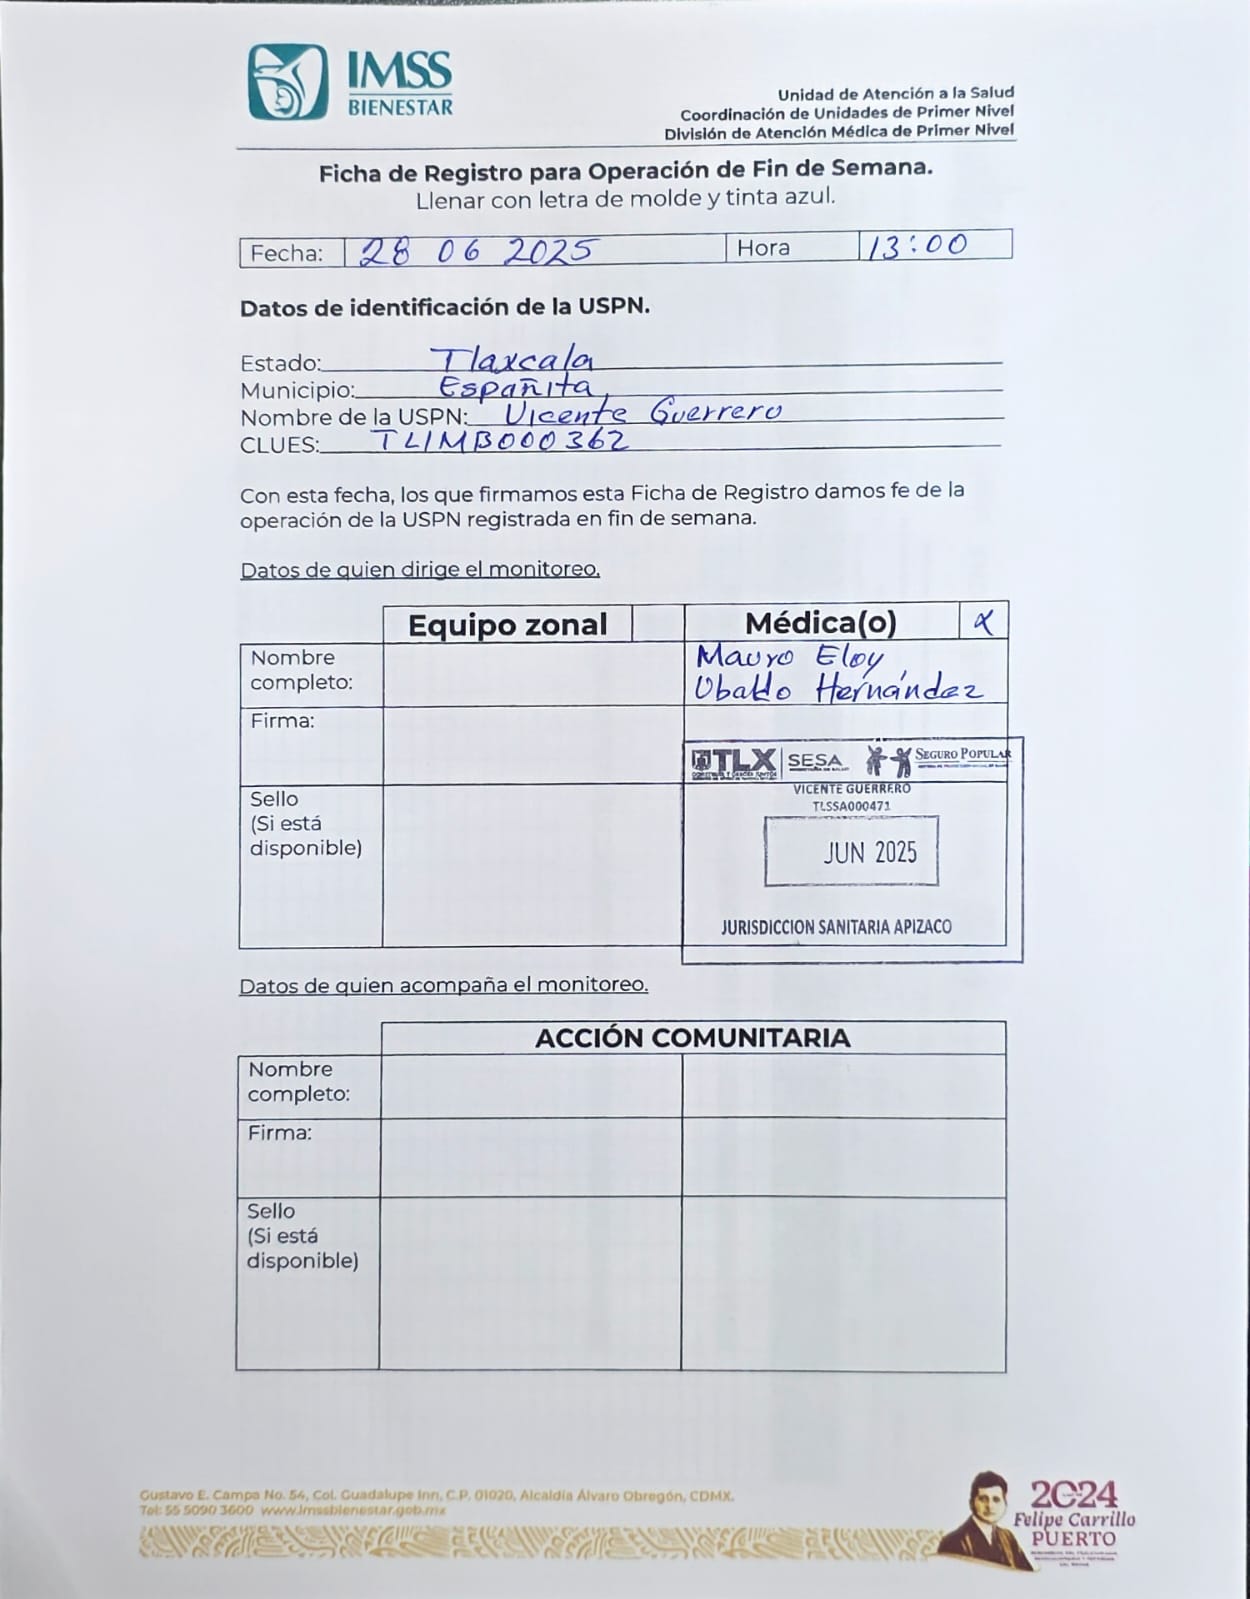 IMSS
BIENESTAR
Unidad de Atención a la Salud
Coordinación de Unidades de Primer Nivel
División de Atención Médica de Primer Nivel
Ficha de Registro para Operación de Fin de Semana.
Llenar con letra de molde y tinta azul.
Fecha: 28 06 2025 Hora 13:00
Datos de identificación de la USPN.
Estado: Tlaxcala
Municipio: Españita
Nombre de la USPN: Vicente Guerrero
CLUES: TLIMB000362
Con esta fecha, los que firmamos esta Ficha de Registro damos fe de la
operación de la USPN registrada en fin de semana.
Datos de quien dirige el monitoreo.
Equipo zonal Médica(o) X
Nombre
completo:
Mauro Eloy
Ubaldo Hernández
Firma:
TLX SESA SEGURO POPULAR
VICENTE GUERRERO
TLSSA000471
Sello
(Si está
disponible)
JUN 2025
JURISDICCION SANITARIA APIZACO
Datos de quien acompaña el monitoreo.
ACCIÓN COMUNITARIA
Nombre
completo:
Firma:
Sello
(Si está
disponible)
Gustavo E. Campa No. 54, Col. Guadalupe Inn, C.P. 01020, Alcaldía Álvaro Obregón, CDMX.
Tel: 55 5090 3600 www.imssbienestar.gob.mx
2024
Felipe Carrillo
PUERTO